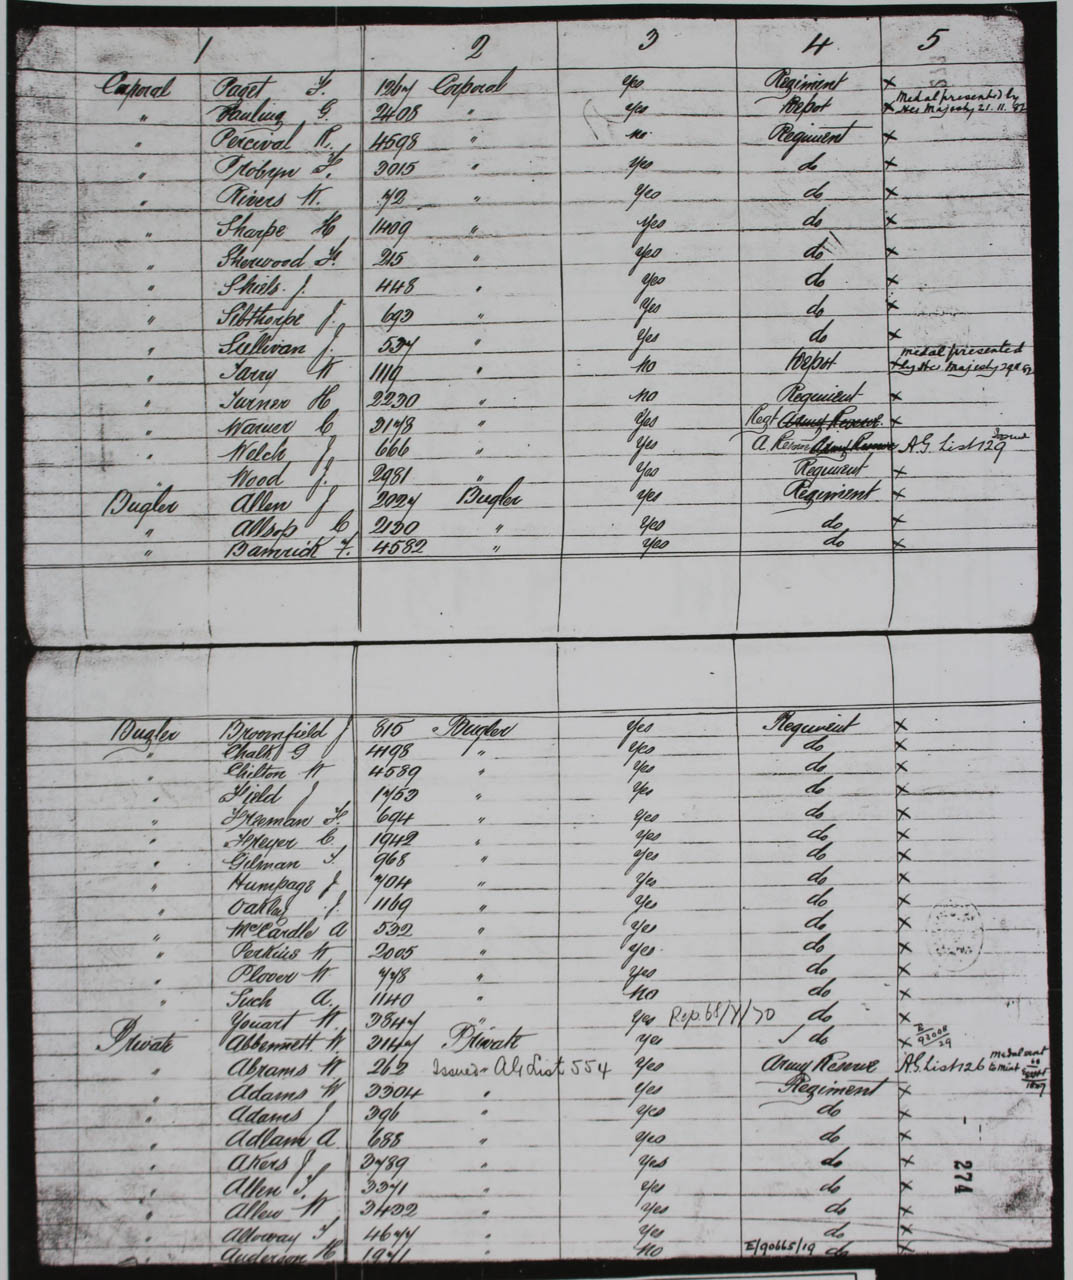 1 2 3 4 5
Corporal Paget F. 1267 Corporal Yes Regiment x
" Pauling G. 2408 " Yes Depot x Medal presented by Her Majesty 21.11.82
" Percival R. 4598 " no Regiment x
" Probyn F. 3015 " Yes do x
" Rivers W. 72 " Yes do x
" Sharpe H 1409 " Yes do x
" Sherwood F. 215 " Yes do x
" Shiels. J. 448 " Yes do x
" Sibthorpe J. 693 " Yes do x
" Sullivan J. 537 " Yes do x
" Tarry W 1119 " No Depot x medal presented by Her Majesty
" Turner H 2230 " No Regiment x
" Warner C 3178 " Yes Regt Army Reserve x
" Welch J 666 " Yes A. Reserve Army Reserve A.G. List 129
" Wood J. 2981 " Yes Regiment x
Bugler Allen J 2027 Bugler Yes Regiment x
" Allsop C 2130 " Yes do x
" Bamrick F. 4582 " Yes do x
Bugler Broomfield J 815 Bugler Yes Regiment x
" Chalk G 4198 " Yes do x
" Chilton W 4589 " Yes do x
" Field J 1753 " Yes do x
" Freeman F. 694 " Yes do x
" Freyer C. 1942 " Yes do x
" Gilman F. 968 " Yes do x
" Humpage J 704 " Yes do x
" Oakley J. 1169 " Yes do x
" McCardle A 532 " Yes do x
" Perkins W 2005 " Yes do x
" Plover W 778 " Yes do x
" Such A. 1140 " No do x
" Youart W 3847 " Yes Rep 68/Y/70 do x
Private Abbennett. W 3147 Private Yes do x E/92008/29
" Abrams W 262 Issued A.G List 554 Yes Army Reserve A.G. List 126 medal sent to Mint
" Adams W 3304 " Yes Regiment x
" Adams J 396 " Yes do x
" Adlam A 688 " Yes do x
" Akers J 3789 " Yes do x
" Allen F. 3371 " Yes do x
" Allen W 3432 " Yes do x
" Alloway F 4677 " Yes do x
" Anderson H 1971 " No E/90665/19 do x
274